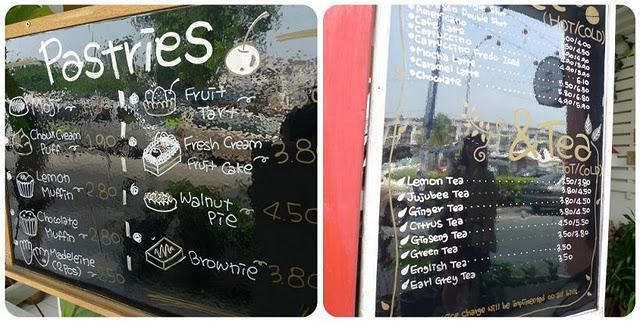 Pastries
Moji
Chou Cream
Puff 1.90
Lemon
Muffin 2.80
Chocolate
Muffin 2.80
Madeleine
(2pcs) 2.50
Fruit
Tart
Fresh Cream
Fruit Cake 3.8
Walnut
Pie 4.50
Brownie 3.80
(HOT/COLD)
Double Shot
Americano
Cafe Latte
Cappuccino
Cappuccino Fredo Iced
Mocha Latte
Caramel Latte
Chocolate
& Tea
HOT/COLD
Lemon Tea 3.50/3.80
Jujubee Tea 3.80/4.50
Ginger Tea 3.80/4.50
Citrus Tea 4.50/5.50
Ginseng Tea 3.50/3.80
Green Tea 3.50
English Tea 3.50
Earl Grey Tea
charge will be implimented on all bill.